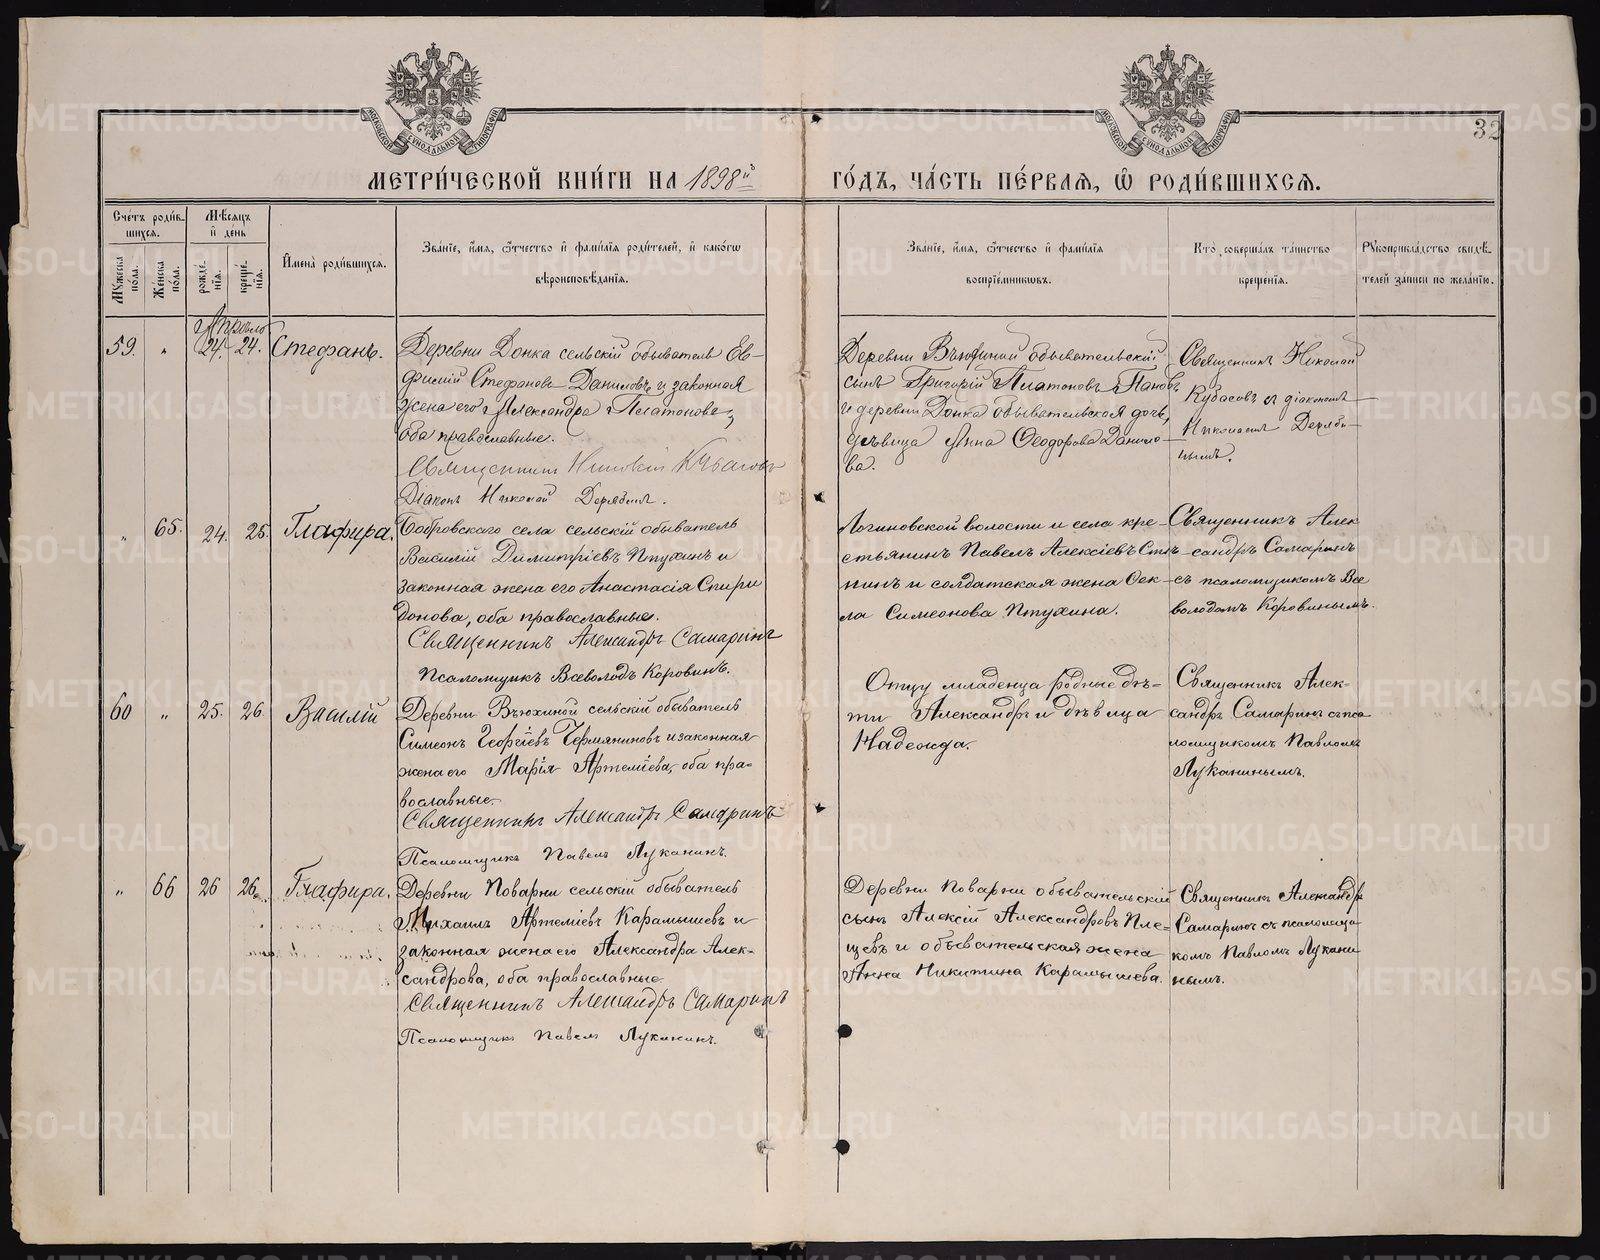 32
МЕТРИЧЕСКОЙ КНИГИ НА 1898й ГОДЪ, ЧАСТЬ ПЕРВАЯ, Ѡ РОДИВШИХСЯ.
Счетъ родив-
шихся.
Мужеска пола.
Женска пола.
Мѣсяцъ
и день
рожде-
нія.
креще-
нія.
Имена родившихся.
Званіе, имя, ѿчество и фамилія родителей, и какогѡ
вѣроисповѣданія.
Званіе, имя, ѿчество и фамилія
воспріемниковъ.
Кто совершалъ таинство
крещенія.
Рукоприкладство свидѣ-
телей записи по желанію.
Апрѣль
59. „ 24. 24. Стефанъ.
Деревни Донка сельскій обыватель Ев-
фимій Стефановъ Даниловъ и законная
жена его Александра Платонова,
оба православные.
Священникъ Николай Кубасовъ
Діаконъ Николай Дерябинъ.
Деревни Вьюхиной обывательскій
сынъ Григорій Платоновъ Пановъ
и деревни Донка обывательская дочь,
дѣвица Анна Ѳеодорова Данило-
ва.
Священникъ Николай
Кубасовъ съ діакономъ
Николаемъ Деряби-
нымъ.
„ 65. 24. 25. Глафира.
Бобровскаго села сельскій обыватель
Василій Димитріевъ Птухинъ и
законная жена его Анастасія Спири
донова, оба православные.
Священникъ Александръ Самаринъ
Псаломщикъ Всеволодъ Коровинъ.
Логиновской волости и села кре-
стьянинъ Павелъ Алексіевъ
и солдатская жена Ѳек-
ла Симеонова Птухина.
Священникъ Алек
сандръ Самаринъ
съ псаломщикомъ Все
володомъ Коровинымъ.
60 „ 25. 26. Василій
Деревни Вьюхиной сельскій обыватель
Симеонъ Георгіевъ Чермяниновъ и законная
жена его Марія Артеміева, оба пра-
вославные.
Священникъ Александръ Самаринъ
Псаломщикъ Павелъ Луканинъ.
Отцу младенца родные дѣ-
ти Александръ и дѣвица
Надежда.
Священникъ Алек-
сандръ Самаринъ съ пса
ломщикомъ Павломъ
Луканинымъ.
„ 66 26 26. Глафира.
Деревни Поварни сельскій обыватель
Михаилъ Артеміевъ Карамышевъ и
законная жена его Александра Алек-
сандрова, оба православные
Священникъ Александръ Самаринъ
Псаломщикъ Павелъ Луканинъ.
Деревни Поварни обывательскій
сынъ Алексій Александровъ Пле-
щевъ и обывательская жена
Анна Никитина Карамышева.
Священникъ Александръ
Самаринъ съ псаломщи
комъ Павломъ Лукани
нымъ.